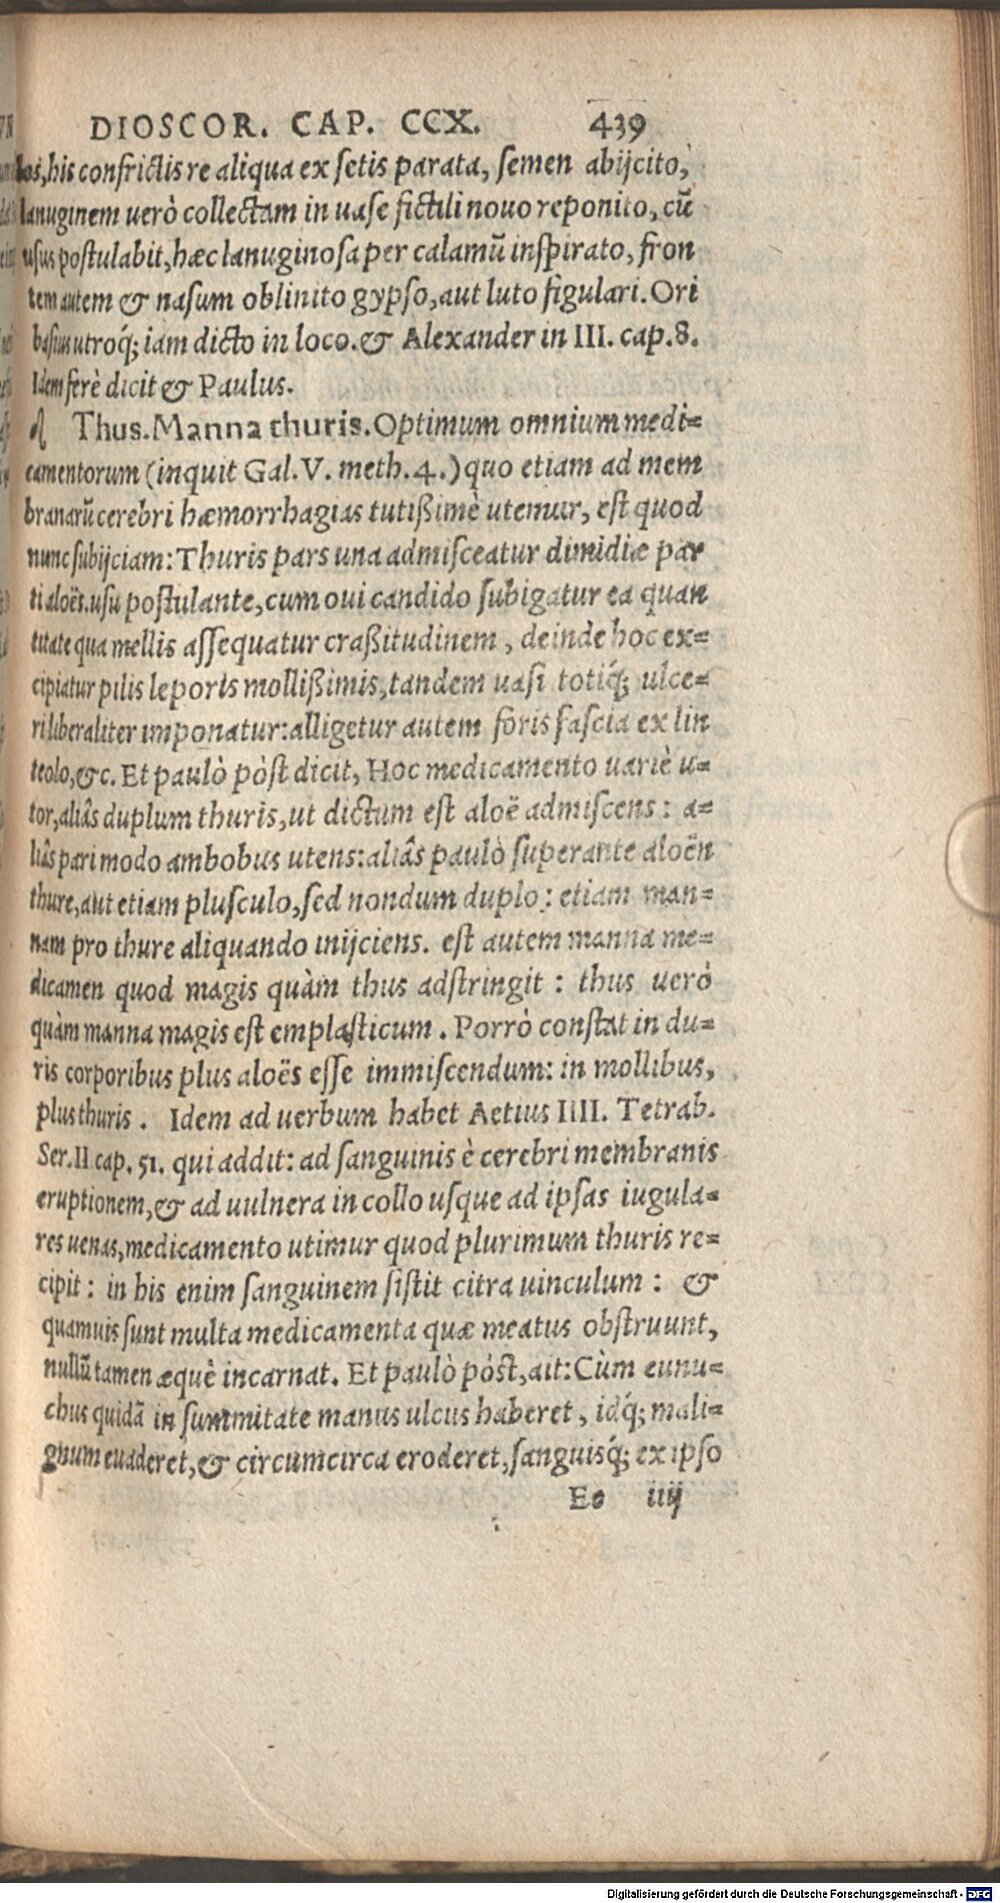 DIOSCOR. CAP. CCX. 439
los, his confrictis re aliqua ex setis parata, semen abijcito,
lanuginem uerò collectam in uase fictili nouo reponito, cũ
usus postulabit, hæc lanuginosa per calamũ inspirato, fron
tem autem & nasum oblinito gypso, aut luto figulari. Ori
basius utroq́; iam dicto in loco. & Alexander in III. cap. 8.
Idem ferè dicit & Paulus.
Thus. Manna thuris. Optimum omnium medi=
camentorum (inquit Gal. V. meth. 4.) quo etiam ad mem
branarũ cerebri hæmorrhagias tutißimè utemur, est quod
nunc subijciam: Thuris pars una admisceatur dimidiæ par
ti aloës. usu postulante, cum oui candido subigatur ea quan
titate qua mellis assequatur craßitudinem, deinde hoc ex=
cipiatur pilis leporis mollißimis, tandem uasi totiq́; ulce=
ri liberaliter imponatur: alligetur autem foris fascia ex lin
teolo, &c. Et paulò pòst dicit, Hoc medicamento uariè u=
tor, aliâs duplum thuris, ut dictum est aloë admiscens: a=
liâs pari modo ambobus utens: aliâs paulò superante aloën
thure, aut etiam plusculo, sed nondum duplo: etiam man=
nam pro thure aliquando inijciens. est autem manna me=
dicamen quod magis quàm thus adstringit: thus uerò
quàm manna magis est emplasticum. Porrò constat in du=
ris corporibus plus aloës esse immiscendum: in mollibus,
plus thuris. Idem ad uerbum habet Aetius IIII. Tetrab.
Ser. II cap. 51. qui addit: ad sanguinis è cerebri membranis
eruptionem, & ad uulnera in collo usque ad ipsas iugula=
res uenas, medicamento utimur quod plurimum thuris re=
cipit: in his enim sanguinem sistit citra uinculum: &
quamuis sunt multa medicamenta quæ meatus obstruunt,
nullũ tamen æquè incarnat. Et paulò pòst, ait: Cùm eunu=
chus quidã in summitate manus ulcus haberet, idq́; mali=
gnum euaderet, & circumcirca eroderet, sanguisq́; ex ipso
Ee iiij
Digitalisierung gefördert durch die Deutsche Forschungsgemeinschaft - DFG